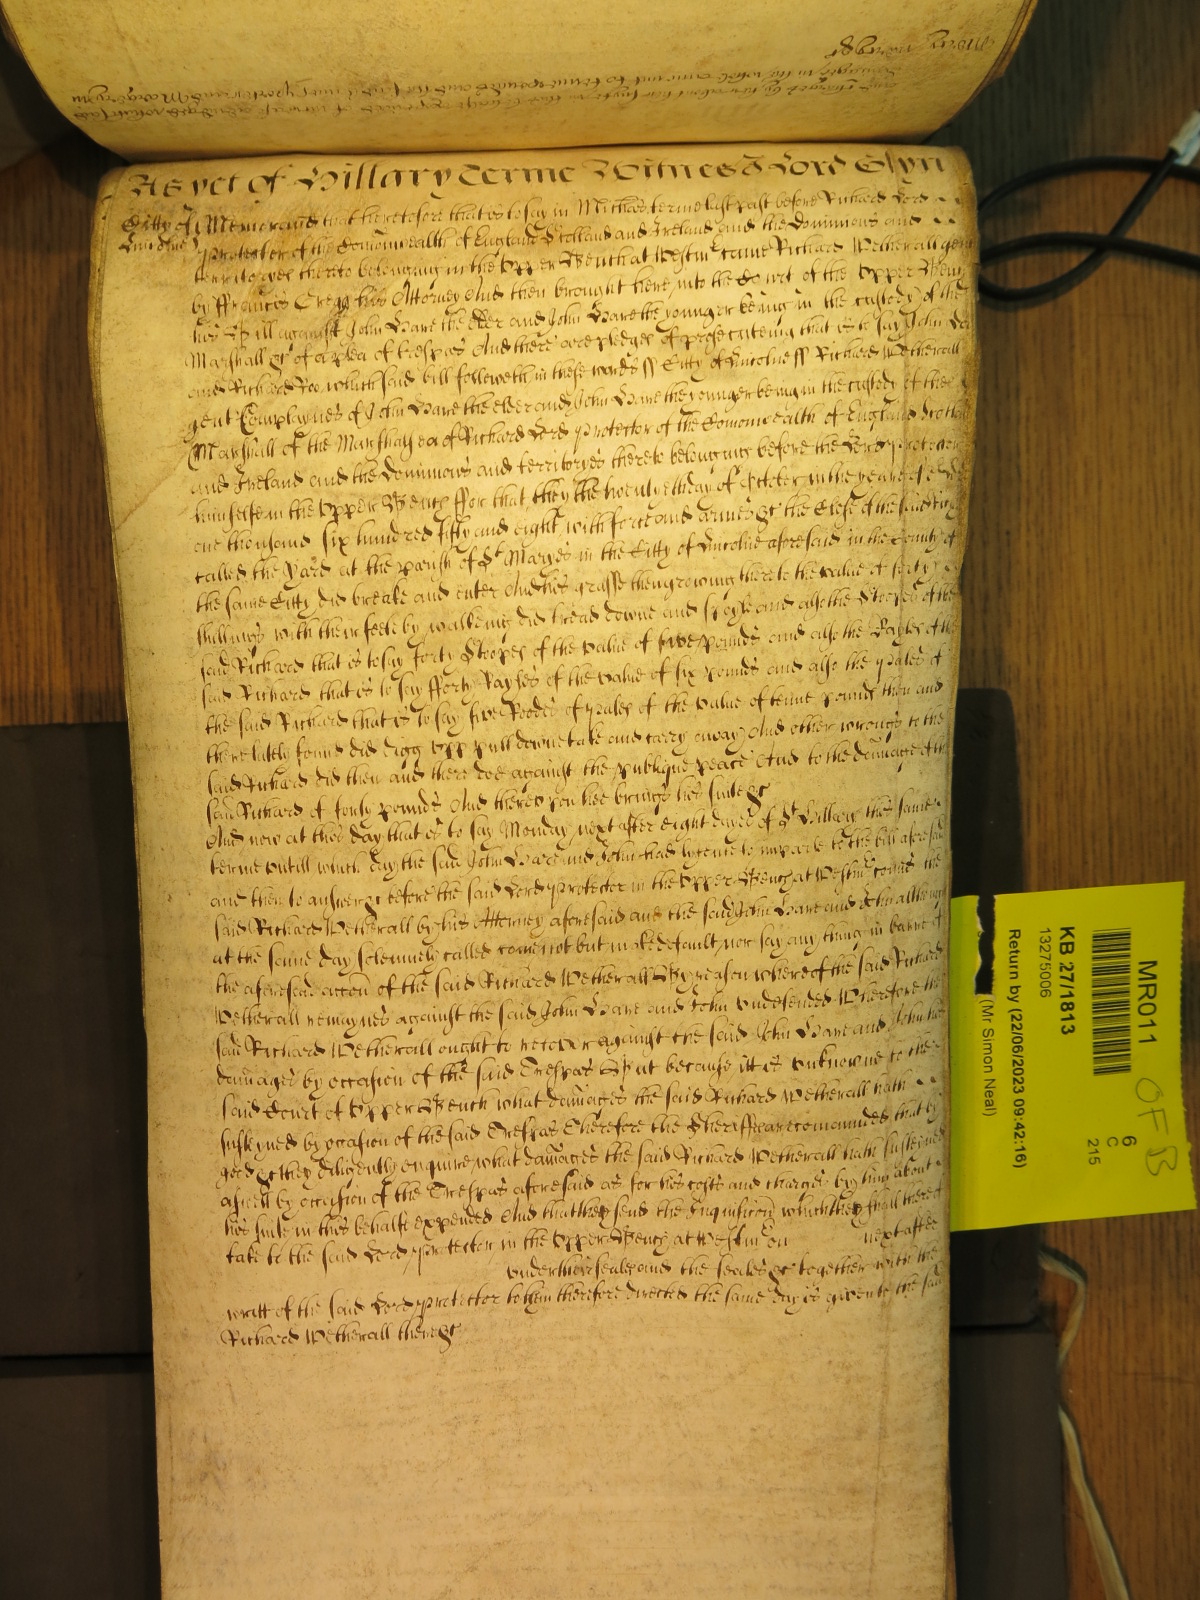 As yet of Hillary Terme Witnes J Lord Glyn
Citty of Memorand that heretofore that is to say in Michas terme last past before Richard Lord
Lincolne Protector of the Comonwealth of England Scotland and Ireland and the Dominions and
territoryes thereto belonging in the Upper Bench at Westm came Richard Wetherall gent
by Ffrancis Gregg his Attorney And then brought here into the Court of the Upper Bench
his Bill against John Hare the elder and John Hare the younger being in the custody of the
Marshall &c of a plea of trespas And there are pledges of prosecuteing that is to say John Doe
and Richard Roe which said bill followeth in these words ss Citty of Lincolne ss Richard Wetherall
gent Complaynes of John Hare the elder and John Hare the younger being in the custody of the
Marshall of the Marshalsea of Richard Lord Protector of the Comonwealth of England Scotland
and Ireland and the Dominions and territoryes thereto belonging before the Lord Protector
himselfe in the Upper Bench ffor that they the twentyeth day of October in the yeare of
one thousand six hundred fifty and eight with force and armes &c the Close of the said Richard
called the Yard at the parish of St Maryes in the Citty of Lincolne aforesaid in the County of
the same Citty did breake and enter And his grasse then growing there to the value of forty
shillings with their feete by walkeing did tread downe and spoyle and also the Stoopes of the
said Richard that is to say forty Stoopes of the value of five pounds and also the Rayles of the
said Richard that is to say fforty Rayles of the value of six pounds and also the pales of
the said Richard that is to say five Roodes of pales of the value of tenne pounds then and
there lately found did digg upp pull downe take and carry away And other wrongs to the
said Richard did then and there doe against the publique peace And to the damage of the
said Richard of forty pounds And thereupon hee brings his suite &c
And now at this day that is to say Monday next after eight dayes of St Hillary this same
terme untill which day the said John Hare and John had lycence to imparle to the bill aforesaid
and then to answer &c before the said Lord Protector in the Upper Bench at Westm comes the
said Richard Wetherall by his Attorney aforesaid and the said John Hare and John although
at the same day solemnely called come not but make default nor say any thing in barre of
the aforesaid accon of the said Richard Wetherall By reason whereof the said Richard
Wetherall remaynes against the said John Hare and John undefended Wherefore the
said Richard Wetherall ought to recover against the said John Hare and John his
damages by occasion of the said Trespas But because itt is unknowne to the
said Court of Upper Bench what damages the said Richard Wetherall hath
susteyned by occasion of the said Trespas Therefore the Sheriffs are comanded that by
good &c they diligently enquire what damages the said Richard Wetherall hath susteyned
aswell by occasion of the Trespas aforesaid as for his costs and charges by him about
his suite in this behalfe expended And that they send the Inquisicon which they shall thereof
take to the said Lord Protector in the Upper Bench at Westm on next after
under their seales and the seales &c together with the
writt of the said Lord Protector to them therefore directed the same day is given to the said
Richard Wetherall there &c
MR011
KB 27/1813
13275006
Return by (22/06/2023 09:42:16)
(Mr Simon Neal)
6
C
215
OF B